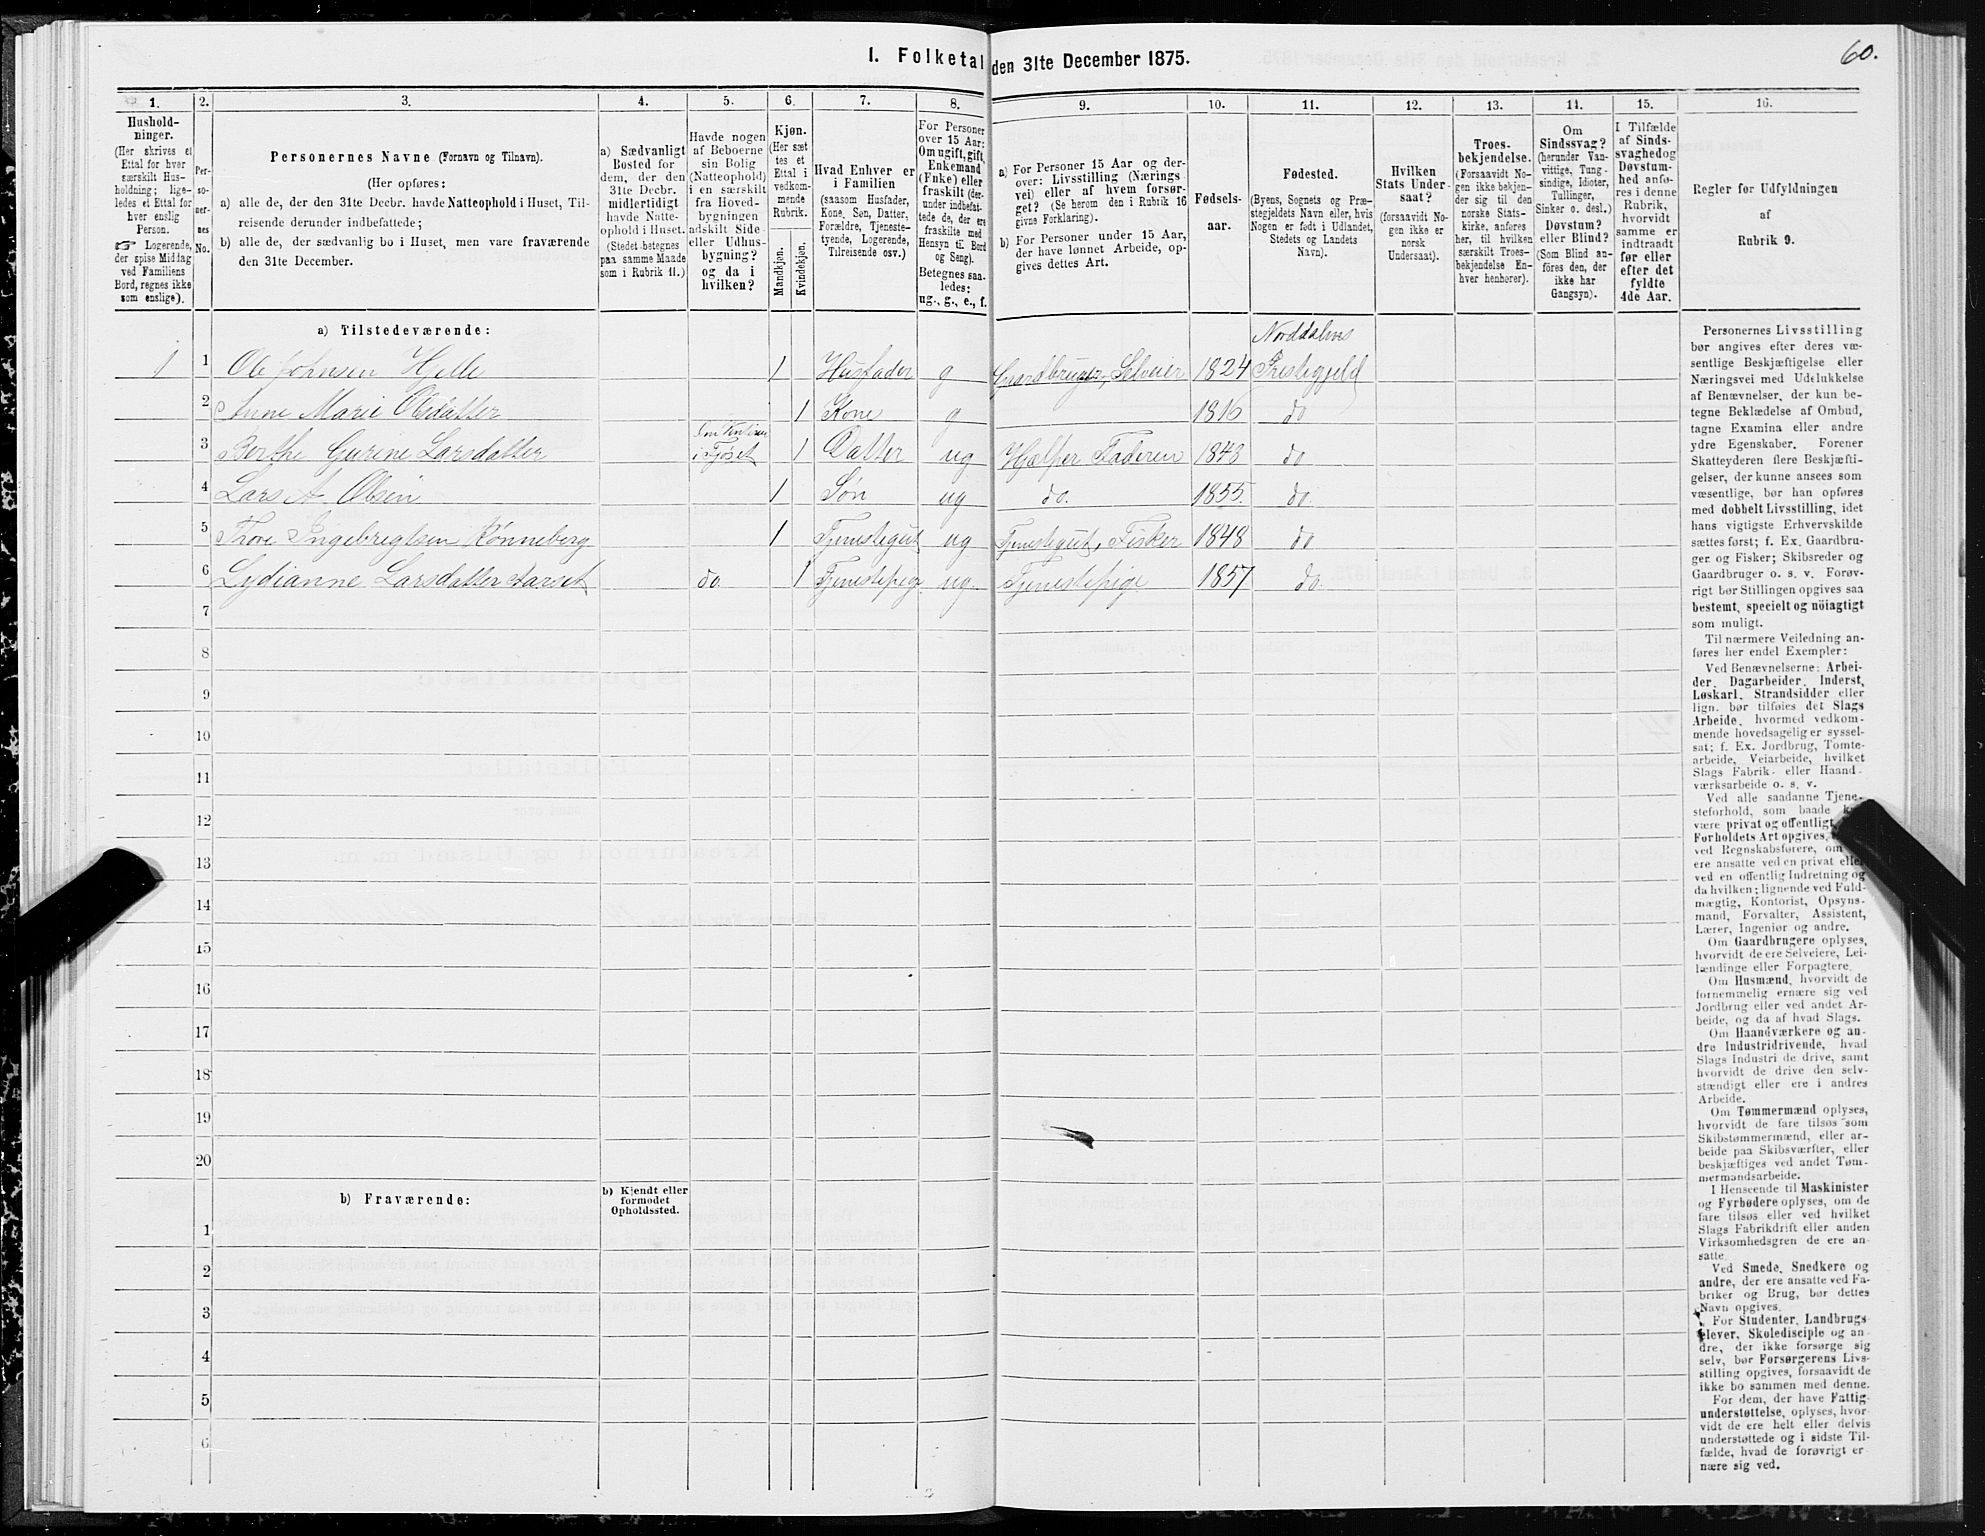 I. Folketal den 31te December 1875.
60.
1.
2.
3.
4.
5.
6.
7.
8.
9.
10.
11.
12.
13.
14.
15.
16.
Hushold-
ninger.
(Her skrives et
Ettal for hver
særskilt Hus-
holdning; lige-
ledes et Ettal for
hver enslig
Person.
☞ Logerende,
der spise Middag
ved Familiens
Bord, regnes ikke
som enslige).
Per-
so-
ner-
nes
No.
Personernes Navne (Fornavn og Tilnavn).
(Her opføres:
a) alle de, der den 31te Decbr. havde Natteophold i Huset, Til-
reisende derunder indbefattede;
b) alle de, der sædvanlig bo i Huset, men vare fraværende
den 31te December.
a) Sædvanligt
Bosted for
dem, der den
31te Decbr.
midlertidigt
havde Natte-
ophold i Huset.
(Stedet betegnes
paa samme Maade
som i Rubrik 11.)
Havde nogen
af Beboerne
sin Bolig
(Natteophold)
i en særskilt
fra Hoved-
bygningen
adskilt Side-
eller Udhus-
bygning?
og da i
hvilken?
Kjøn.
(Her sæt
tes et
Ettal i
vedkom-
mende
Rubrik.
Mandkjøn.
Kvindekjøn.
Hvad Enhver er
i Familien
(saasom Husfader,
Kone, Søn, Datter,
Forældre, Tjeneste-
tyende, Logerende,
Tilreisende osv.)
For Personer
over 15 Aar:
Om ugift, gift,
Enkemand
(Enke) eller
fraskilt (der-
under indbefat-
tede de, der ere
fraskilte med
Hensyn til Bord
og Seng).
Betegnes saa-
ledes:
ug., g., e., f.
a) For Personer 15 Aar og der-
over: Livsstilling (Nærings-
vei) eller af hvem forsør-
get? (Se herom den i Rubrik 16
givne Forklaring).
b) For Personer under 15 Aar,
der have lønnet Arbeide, op-
gives dettes Art.
Fødsels-
aar.
Fødested.
(Byens, Sognets og Præ-
stegjeldets Navn eller, hvis
Nogen er født i Udlandet,
Stedets og Landets
Navn).
Hvilken
Stats Under-
saat?
(forsaavidt No-
gen ikke er
norsk
Undersaat).
Troes-
bekjendelse.
(Forsaavidt No-
gen ikke bekjen-
der sig til den
norske Stats-
kirke, anføres
her, til hvilken
særskilt Troes-
bekjendelse En-
hver henhører).
Om
Sindssvag?
(herunder Van-
vittige, Tung-
sindige, Idioter,
Tullinger,
Sinker o. desl.)
Døvstum?
eller Blind?
(Som Blind an-
føres den, der
ikke har
Gangsyn).
I Tilfælde
af Sinds-
svaghed og
Døvstum-
hed anfø-
res i denne
Rubrik,
hvorvidt
samme er
indtraadt
før eller
efter det
fyldte
4de Aar.
Regler for Udfyldningen
af
Rubrik 9.
a) Tilstedeværende:
Norddalens
1 1 Ole Johnsen Hjelle 1 Husfader g Gaardbruger, Selveier 1824 Prestegjeld
2 Anne Marie Olsdatter 1 Kone g 1816 do
i Fjøset
3 Berthe Gurine Larsdatter 1 Datter ug Hjælper Faderen 1843 do
4 Lars A. Olsen 1 Søn ug do. 1855. do.
5 Thore Ingebrigtsen Rønneberg 1 Tjenestegut ug Tjenestegut, Fisker 1848 do
6 Lydianne Larsdatter Aarset do. 1 Tjenestepige ug. Tjenestepige 1857 do.
7
8
9
10
11
12
13
14
15
16
17
18
19
20
b) Fraværende:
b) Kjendt eller
formodet
Opholdssted.
1
2
3
4
5
6
Personernes Livsstilling
bør angives efter deres væ-
sentlige Beskjæftigelse eller
Næringsvei med Udelukkelse
af Benævnelser, der kun be-
tegne Beklædelse af Ombud,
tagne Examina eller andre
ydre Egenskaber. Forener
Skatteyderen flere Beskjæfti-
gelser, der kunne ansees som
væsentlige, bør han opføres
med dobbelt Livsstilling, idet
hans vigtigste Erhvervskilde
sættes først; f. Ex. Gaardbru-
ger og Fisker; Skibsreder og
Gaardbruger o. s. v. Forøv-
rigt bør Stillingen opgives saa
bestemt, specielt og nöiagtigt
som muligt.
Til nærmere Veiledning an-
føres her endel Exempler:
Ved Benævnelserne: Arbei-
der, Dagarbeider, Inderst,
Løskarl, Strandsidder eller
lign. bør tilføies det Slags
Arbeide, hvormed vedkom-
mende hovedsagelig er syssel-
sat; f. Ex. Jordbrug, Tomte-
arbeide, Veiarbeide, hvilket
Slags Fabrik- eller Haand-
værksarbeide o. s. v.
Ved alle saadanne Tjene-
steforhold, som baade
være privat og offentligt,
Forholdets Art opgives,
ved Regnskabsførere, om
ere ansatte ved en privat eller
ved en offentlig Indretning og
da hvilken; lignende ved Fuld-
mægtig, Kontorist, Opsyns-
mand, Forvalter, Assistent,
Lærer, Ingeniør og andre.
Om Gaardbrugere oplyses,
hvorvidt de ere Selveiere, Lei-
lændinge eller Forpagtere.
Om Husmænd, hvorvidt de
fornemmelig ernære sig ved
Jordbrug eller ved andet Ar-
beide, og da af hvad Slags.
Om Haandværkere og an-
dre Industridrivende, hvad
Slags Industri de drive, samt
hvorvidt de drive den selv-
stændigt eller ere i andres
Arbeide.
Om Tømmermænd oplyses,
hvorvidt de fare tilsøs som
Skibstømmermænd, eller ar-
beide paa Skibsværfter, eller
beskjæftiges ved andet Tøm-
mermandsarbeide.
I Henseende til Maskinister
og Fyrbødere oplyses, om de
fare tilsøs eller ved hvilket
Slags Fabrikdrift eller anden
Virksomhedsgren de ere an-
satte.
Ved Smede, Snedkere og
andre, der ere ansatte ved Fa-
briker og Brug, bør dettes
Navn opgives.
For Studenter, Landbrugs-
elever, Skoledisciple og an-
dre, der ikke forsørge sig
selv, bør Forsørgerens Livs-
stilling opgives, forsaavidt de
ikke bo sammen med denne.
For dem, der have Fattig-
understøttelse, oplyses, hvor-
vidt de ere helt eller delvis
understøttede og i sidste Til-
fælde, hvad de forøvrigt er-
nære sig ved.